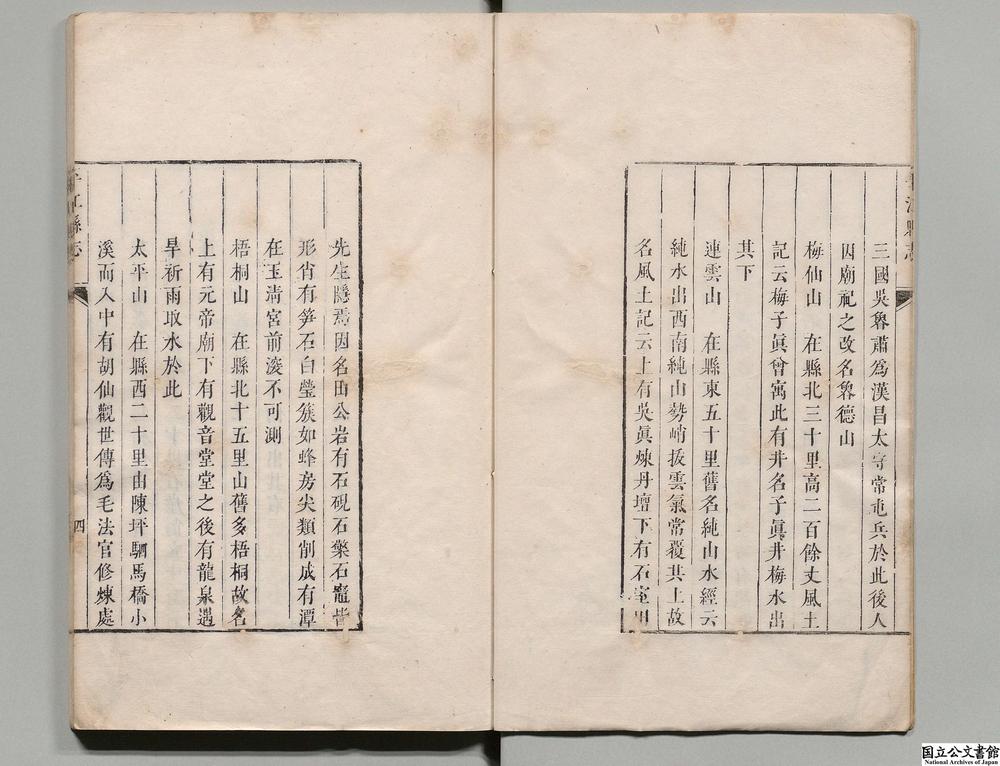 平江縣志
三國吳魯肅爲漢昌太守常屯兵於此後人
因廟祀之改名魯德山
梅仙山　在縣北三十里高二百餘丈風土
記云梅子眞曾寓此有井名子眞井梅水出
其下
連雲山　在縣東五十里舊名純山水經云
純水出西南純山勢峭拔雲氣常覆其上故
名風土記云上有吳眞煉丹壇下有石室
先生隱焉因名田公岩有石硯石藥石竈皆
形肖有筍石白瑩簇如蜂房尖類削成有潭
在玉淸宮前深不可測
梧桐山　在縣北十五里山舊多梧桐故名
上有元帝廟下有觀音堂堂之後有龍泉遇
旱祈雨取水於此
太平山　在縣西二十里由陳坪駟馬橋小
溪而入中有胡仙觀世傳爲毛法官修煉處
平江縣志
四
国立公文書館
National Archives of Japan